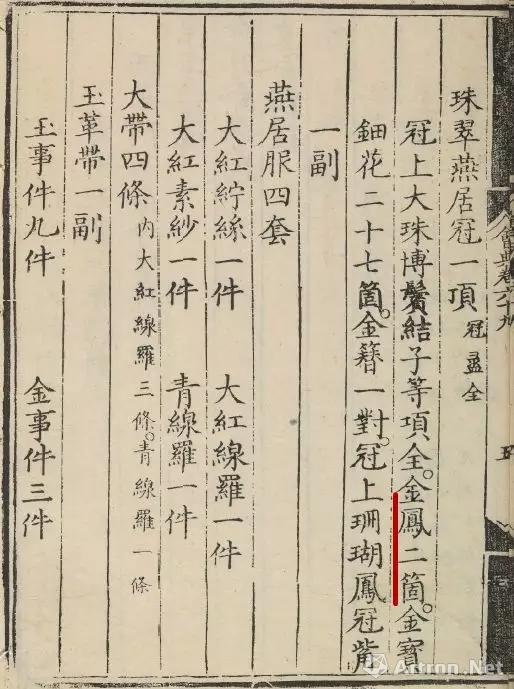 會典卷六十九
五
珠翠燕居冠一頂 冠盝全
冠上大珠博鬢結子等項全。金鳳二箇。金寶
鈿花二十七箇。金簪一對。冠上珊瑚鳳冠觜
一副
燕居服四套
大紅紵絲一件 大紅線羅一件
大紅素紗一件 青線羅一件
大帶四條 內大紅線羅三條。青線羅一條
玉革帶一副
玉事件九件 金事件三件
Artron.Net